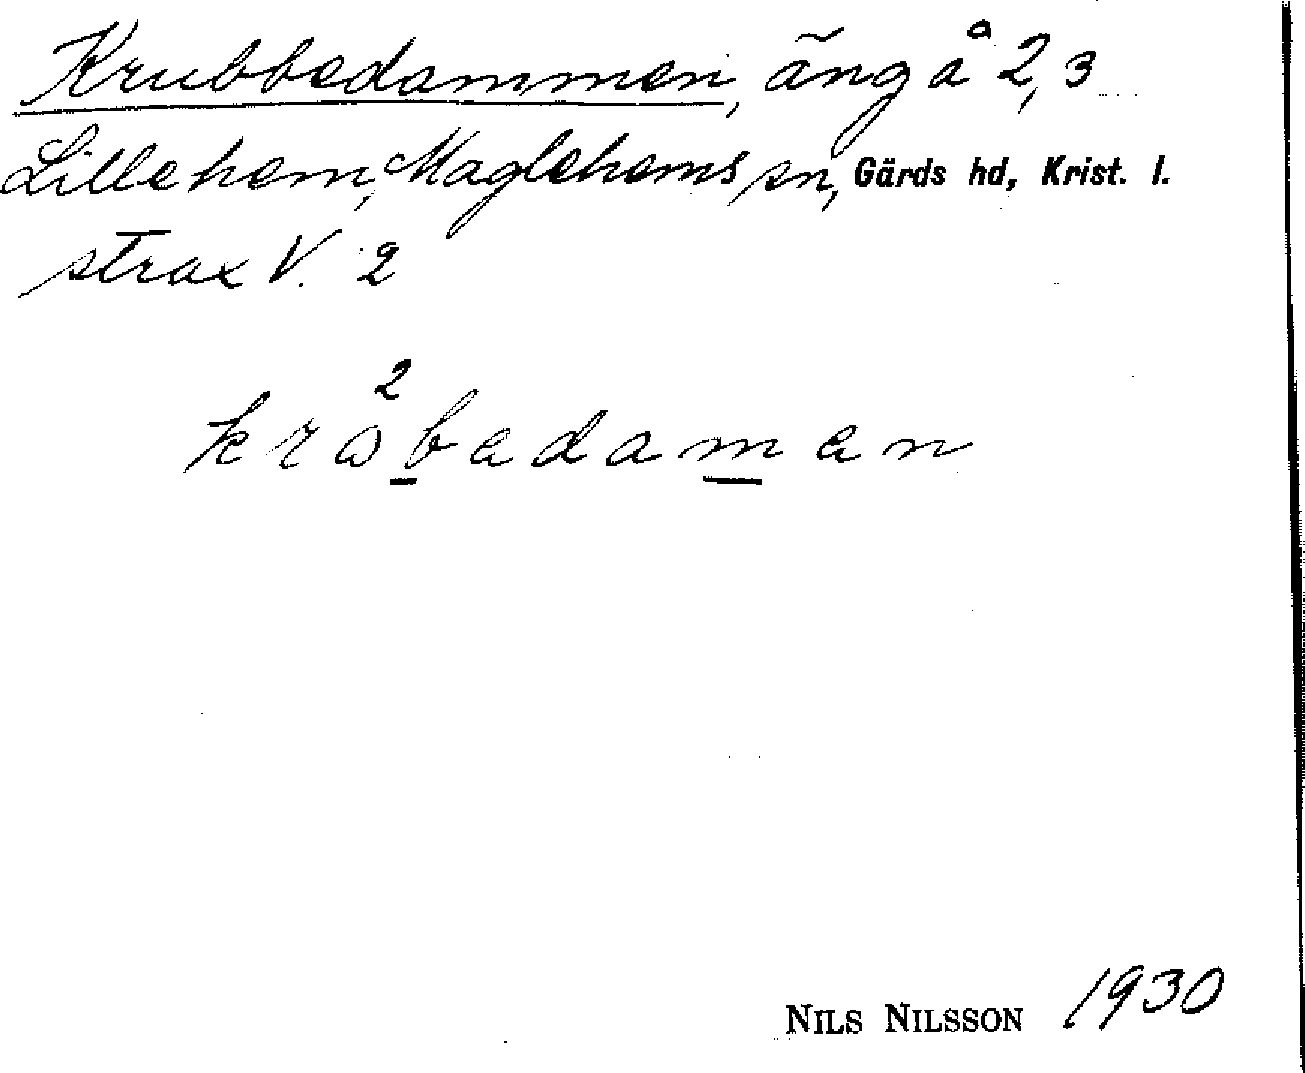 Krubbedammen, äng å 2, 3
Lillehem, Maglehems sn, Gärds hd, Krist. l.
strax V. 2
2
krωbadaman
NILS NILSSON 1930